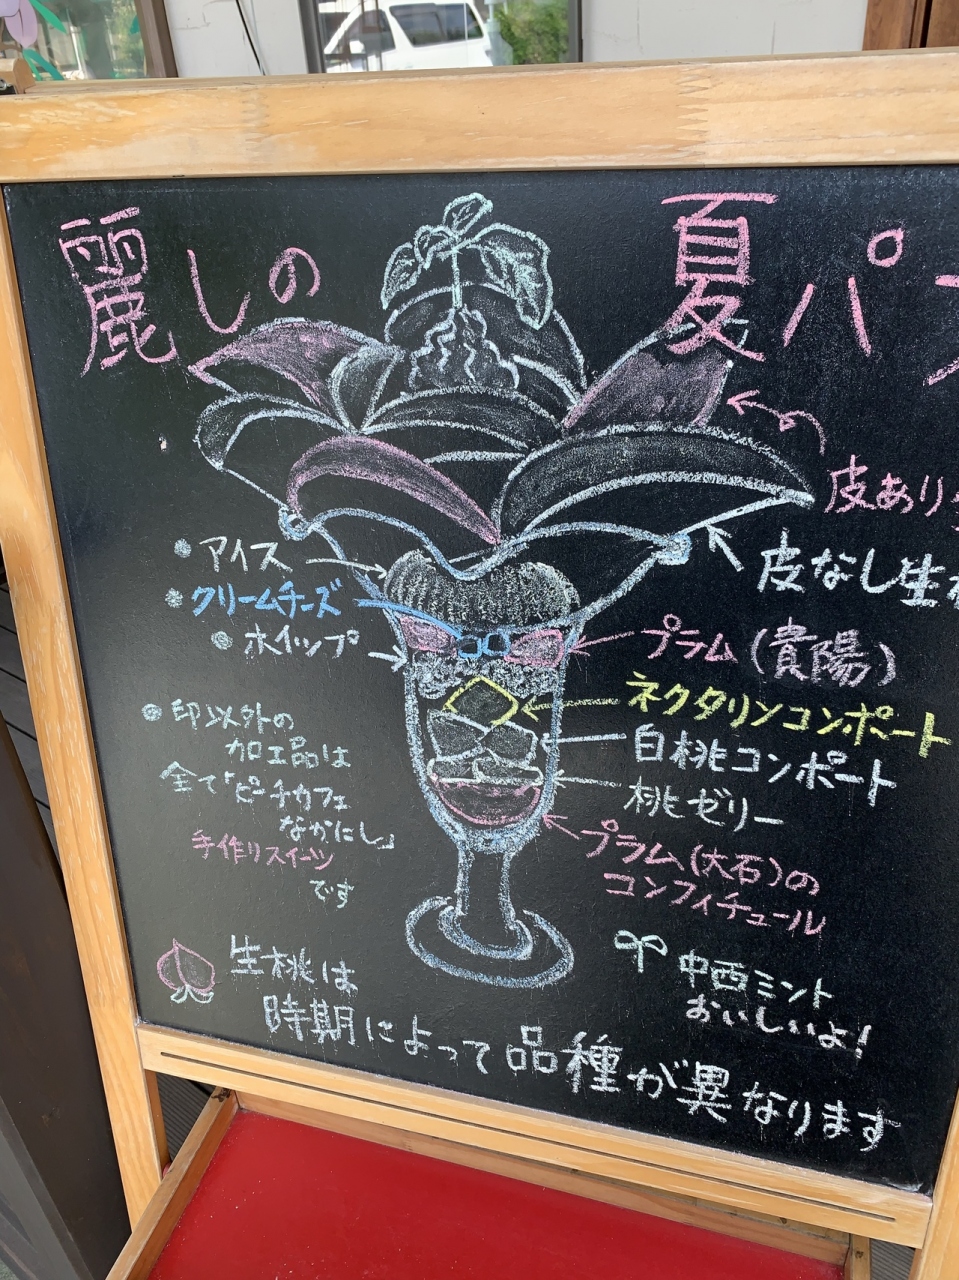 麗しの 夏パフ
皮あり
皮なし生
・アイス
・クリームチーズ
・ホイップ
プラム(貴陽)
ネクタリンコンポート
白桃コンポート
桃ゼリー
プラム(大石)の
コンフィチュール
・印以外の
加工品は
全て「ピーチカフェ
なかにし」
手作りスイーツ
です
中西ミント
おいしいよ!
生桃は
時期によって品種が異なります